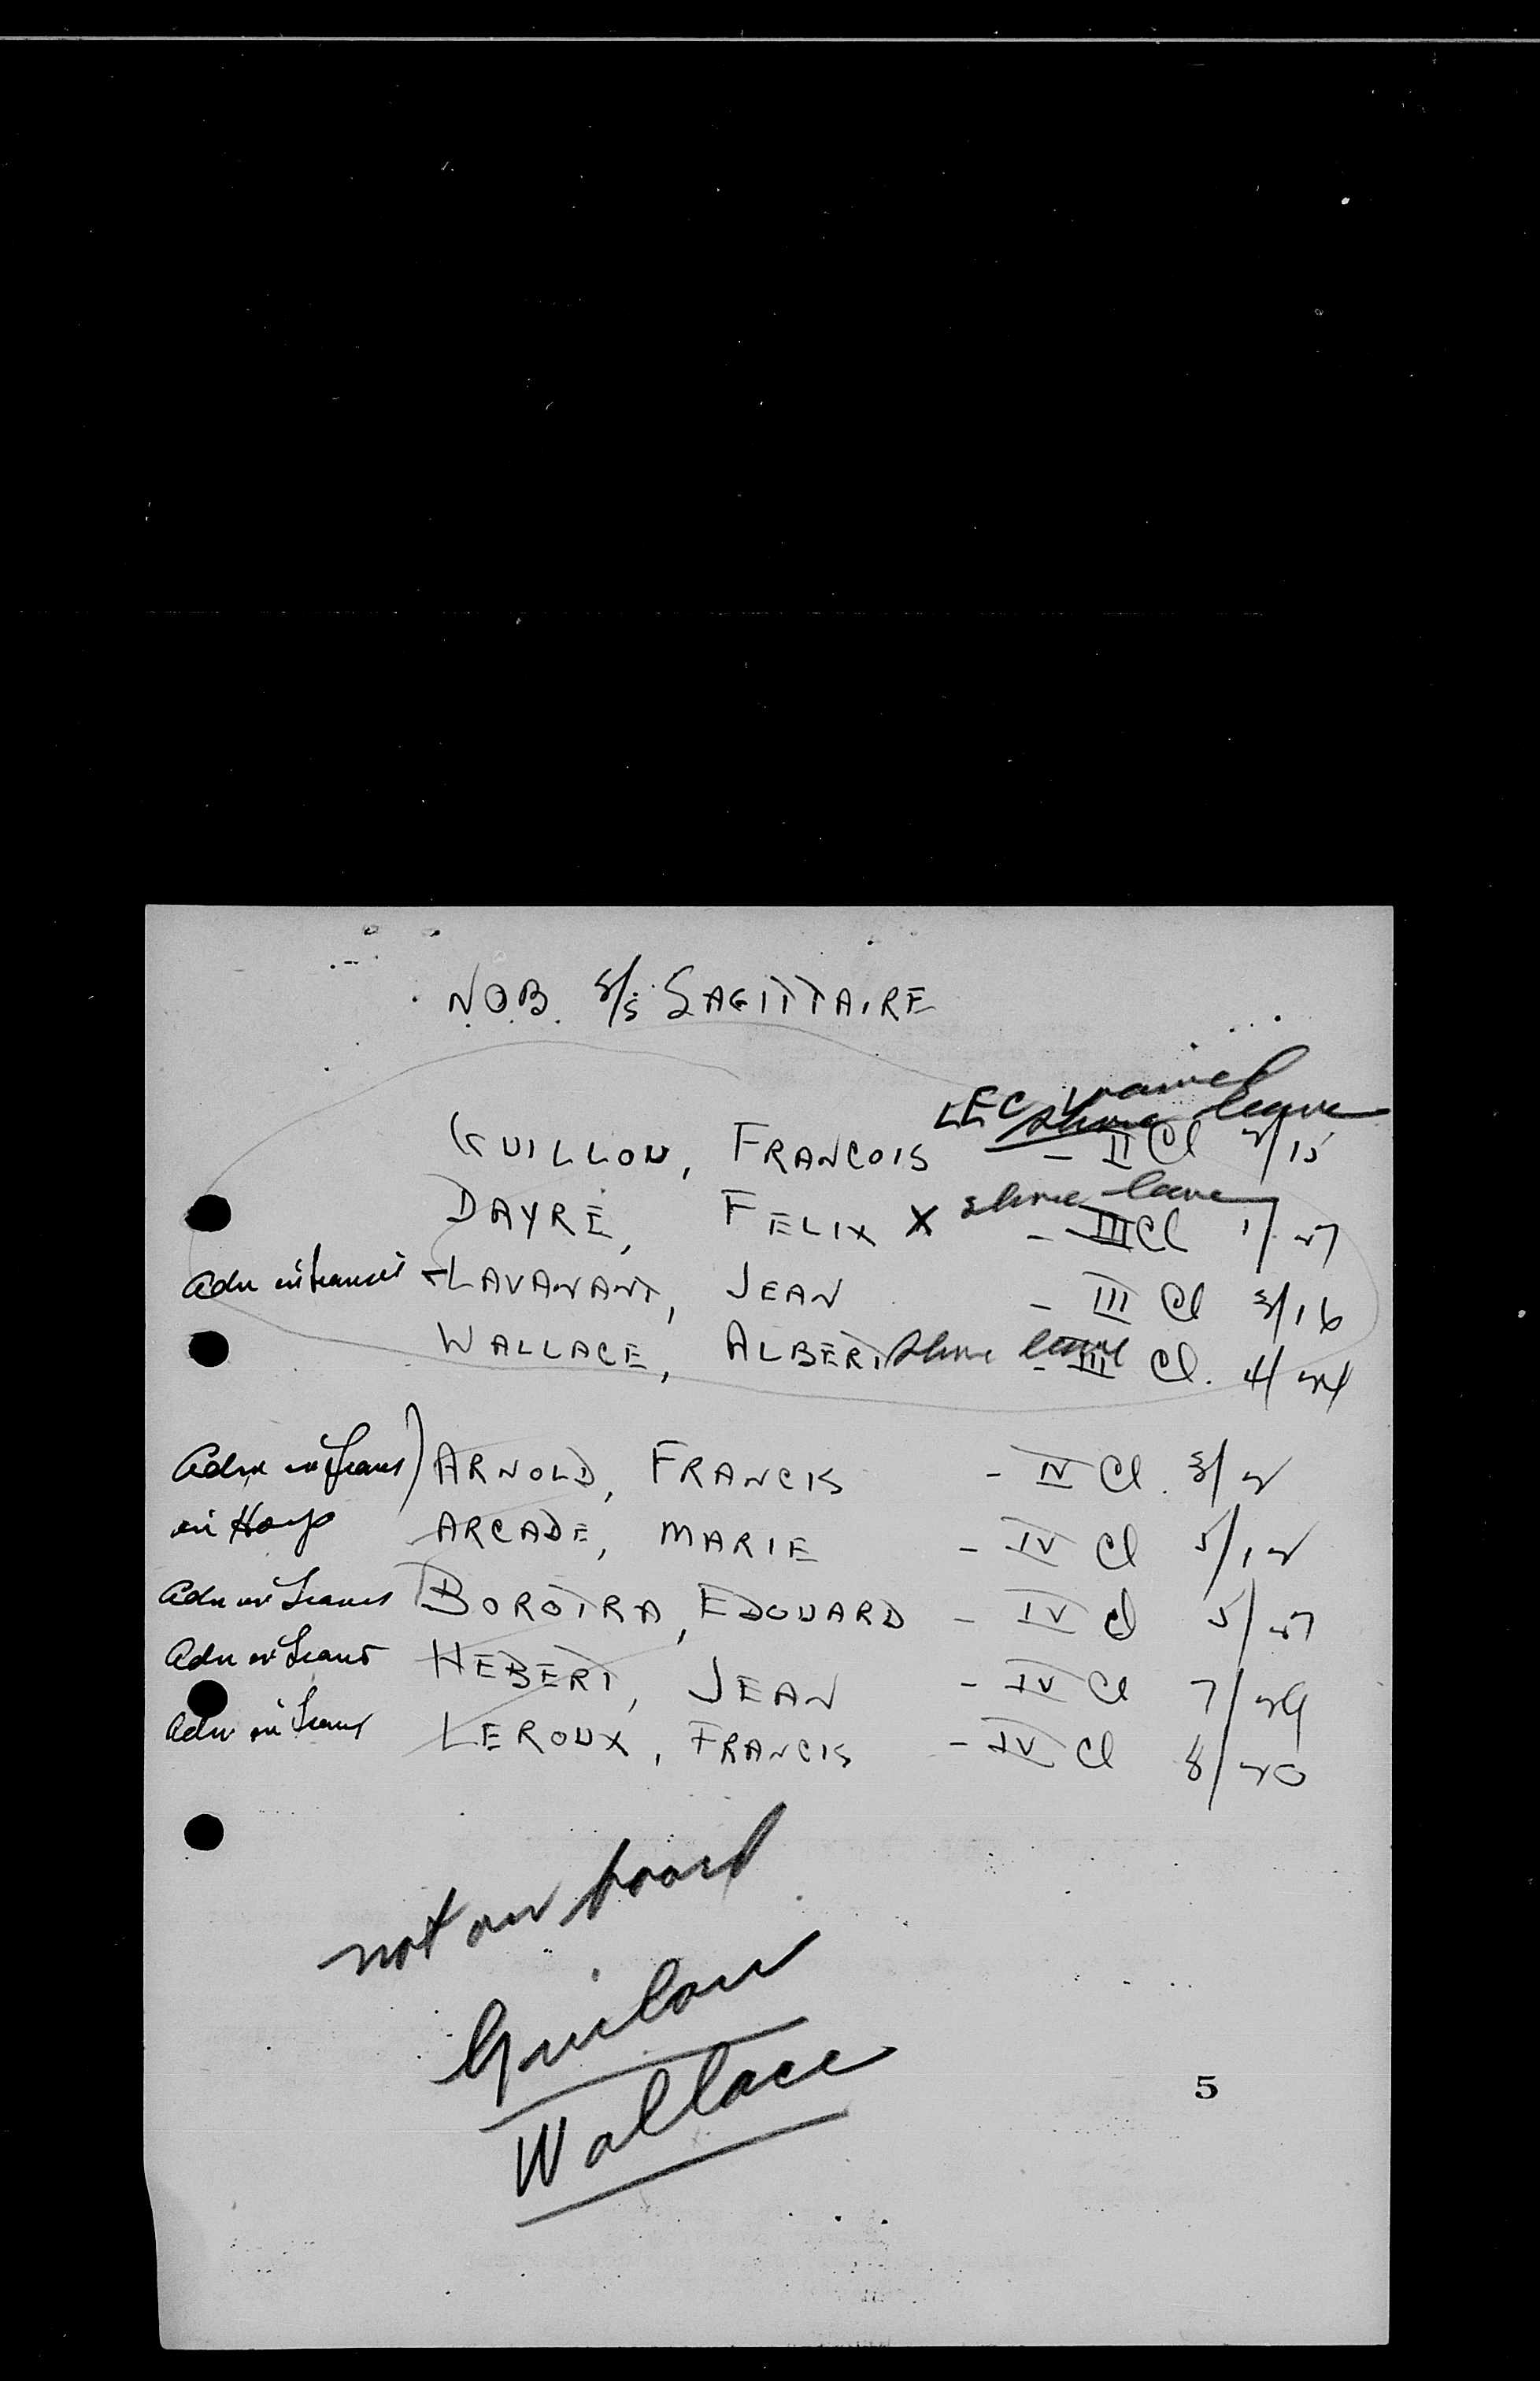 N.O.B. S/S SAGITTAIRE
LEC waived
shore leave
GUILLOU, FRANCOIS - II Cl 2/15
DAYRE, FELIX X shore leave - III Cl 1/27
Adm in transit - LAVANANT, JEAN - III Cl 3/16
WALLACE, ALBERT shore leave - III Cl. 4/24
Adm in trans) ARNOLD, FRANCIS - IV Cl. 3/2
in Hosp ARCADE, MARIE - IV Cl 5/12
Adm in trans BOROTRA, EDOUARD - IV Cl 5/27
Adm in trans HEBERT, JEAN - IV Cl 7/29
Adm in trans LEROUX, FRANCIS - IV Cl 8/20
not on board
Guilou
Wallace
5